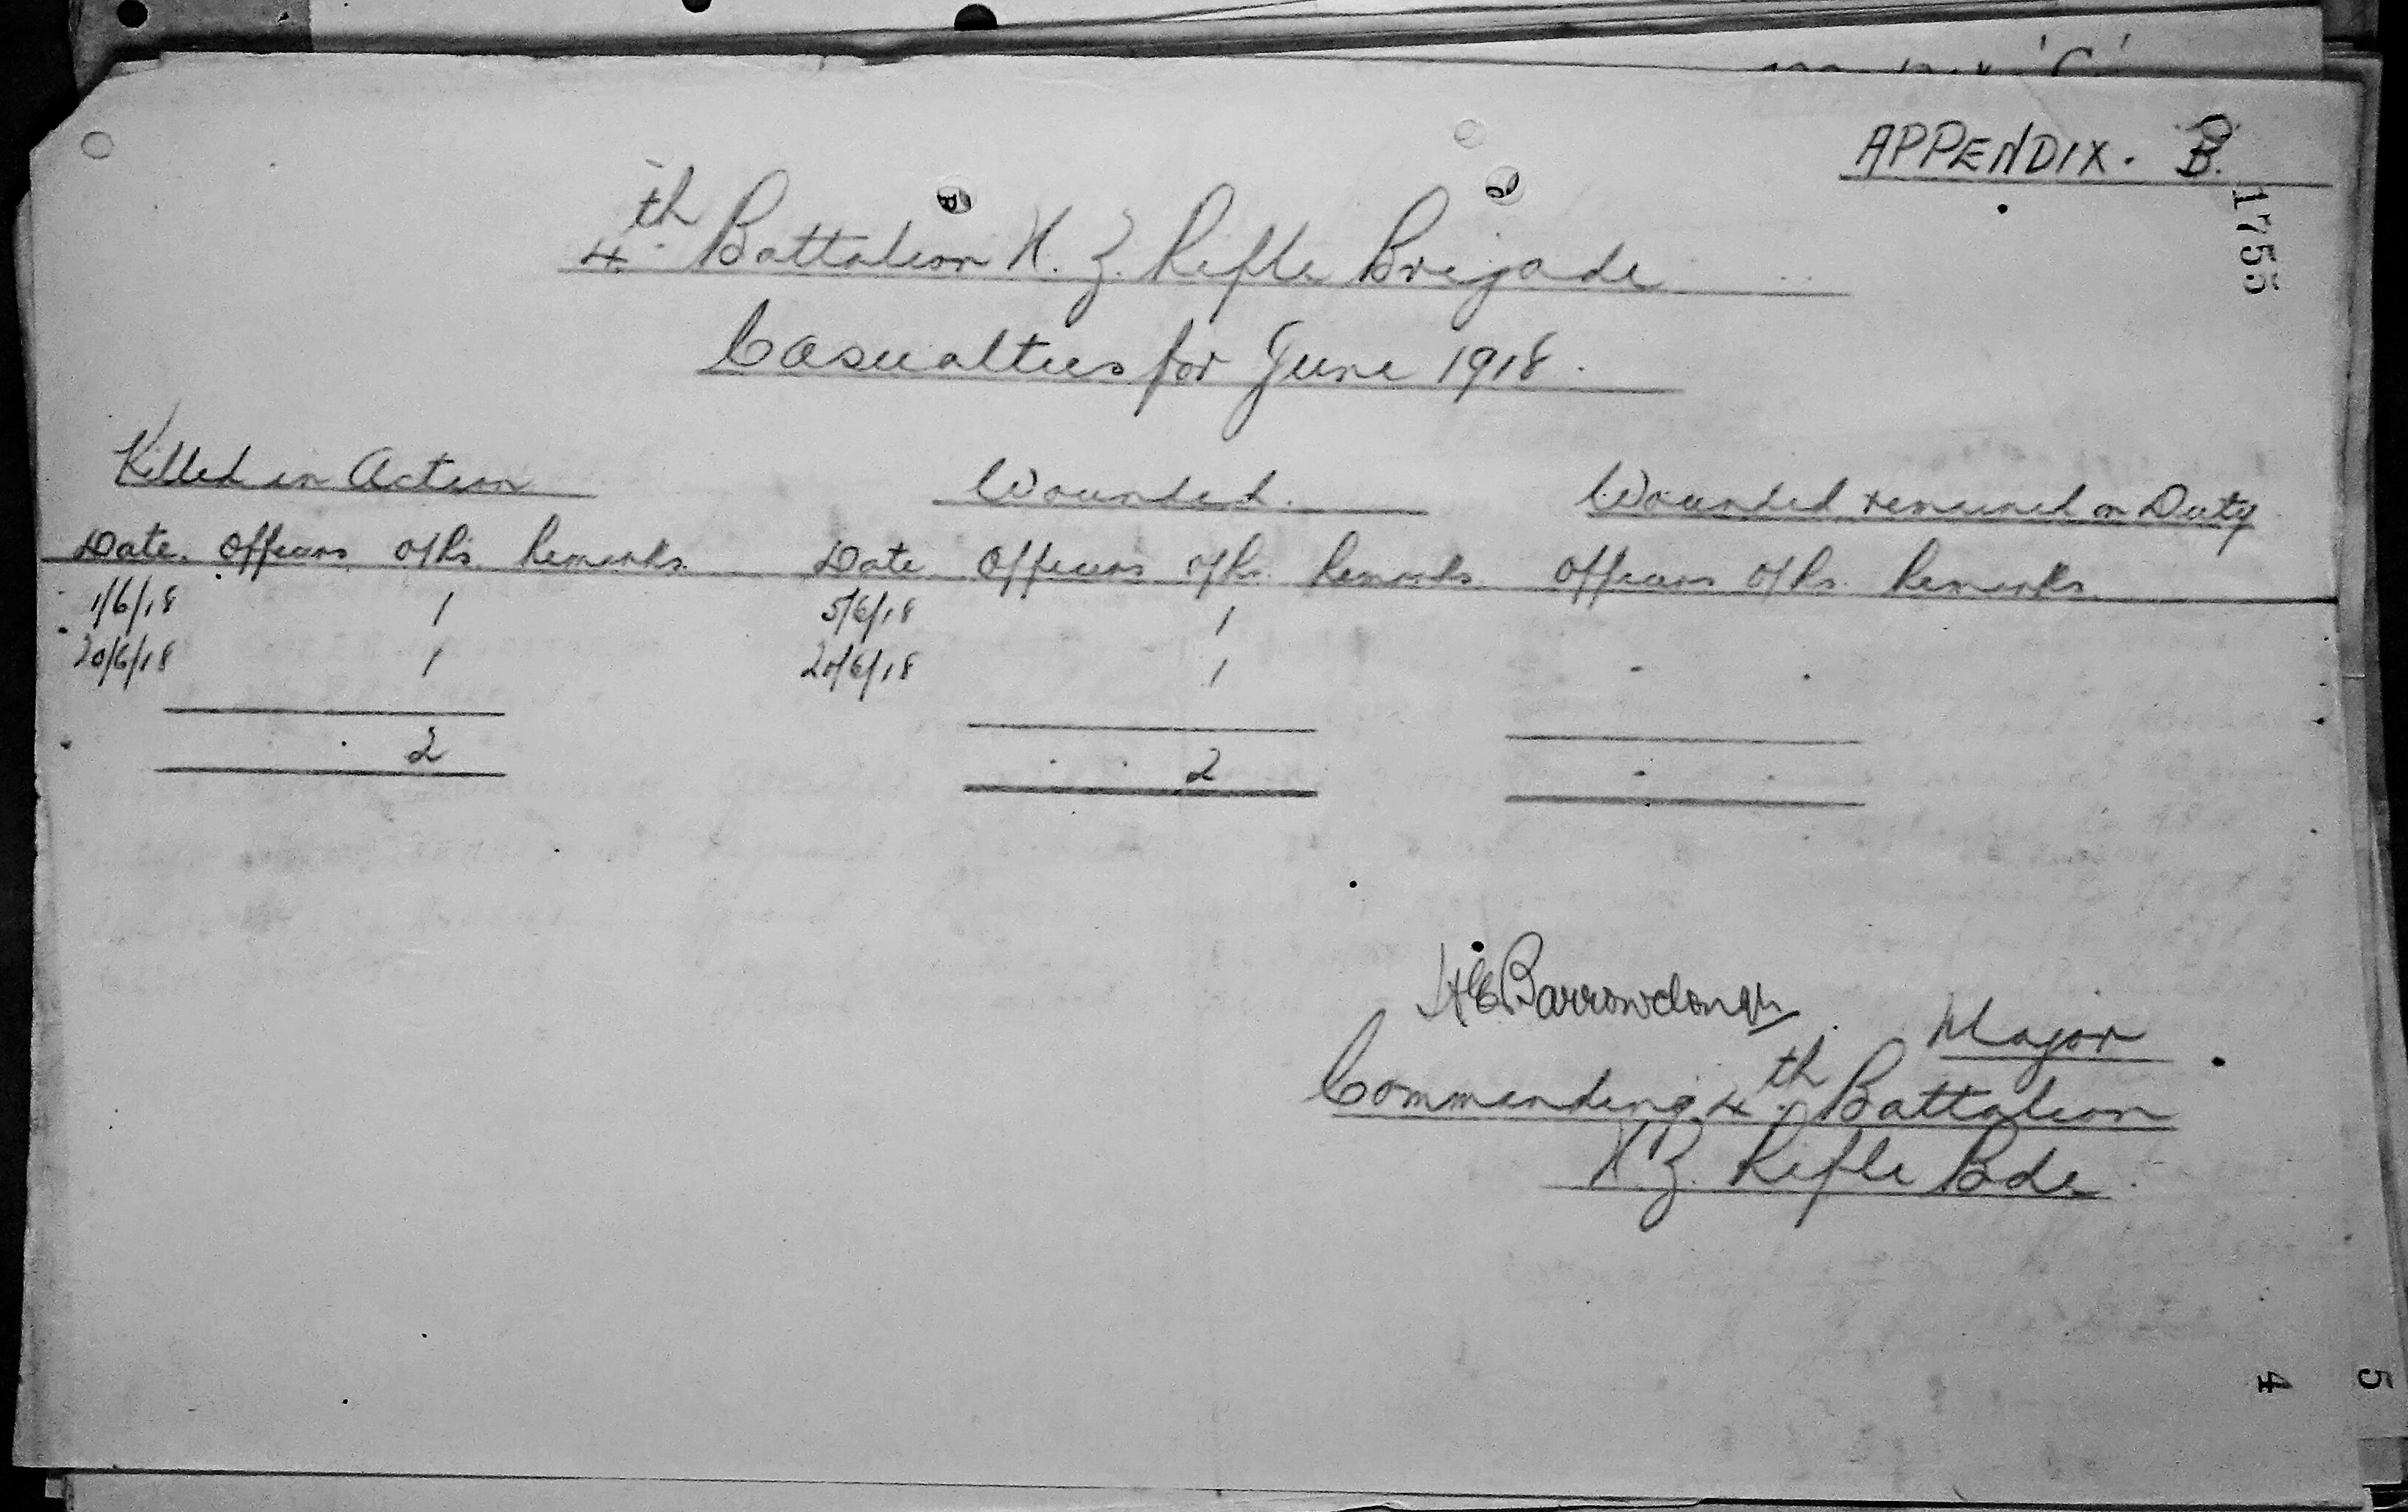 APPENDIX. B.
1755
4th Battalion N. Z. Rifle Brigade
Casualties for June 1918.
Killed in Action Wounded. Wounded remained on Duty
Date. Officers O/Rs. Remarks. Date Officers O/Rs. Remarks. Officers O/Rs. Remarks.
1/6/18 1 5/6/18 1
20/6/18 1 20/6/18 1 - .
2 2 -
HEBarrowclough Major
Commanding 4th Battalion
N.Z. Rifle Bde.
4
5